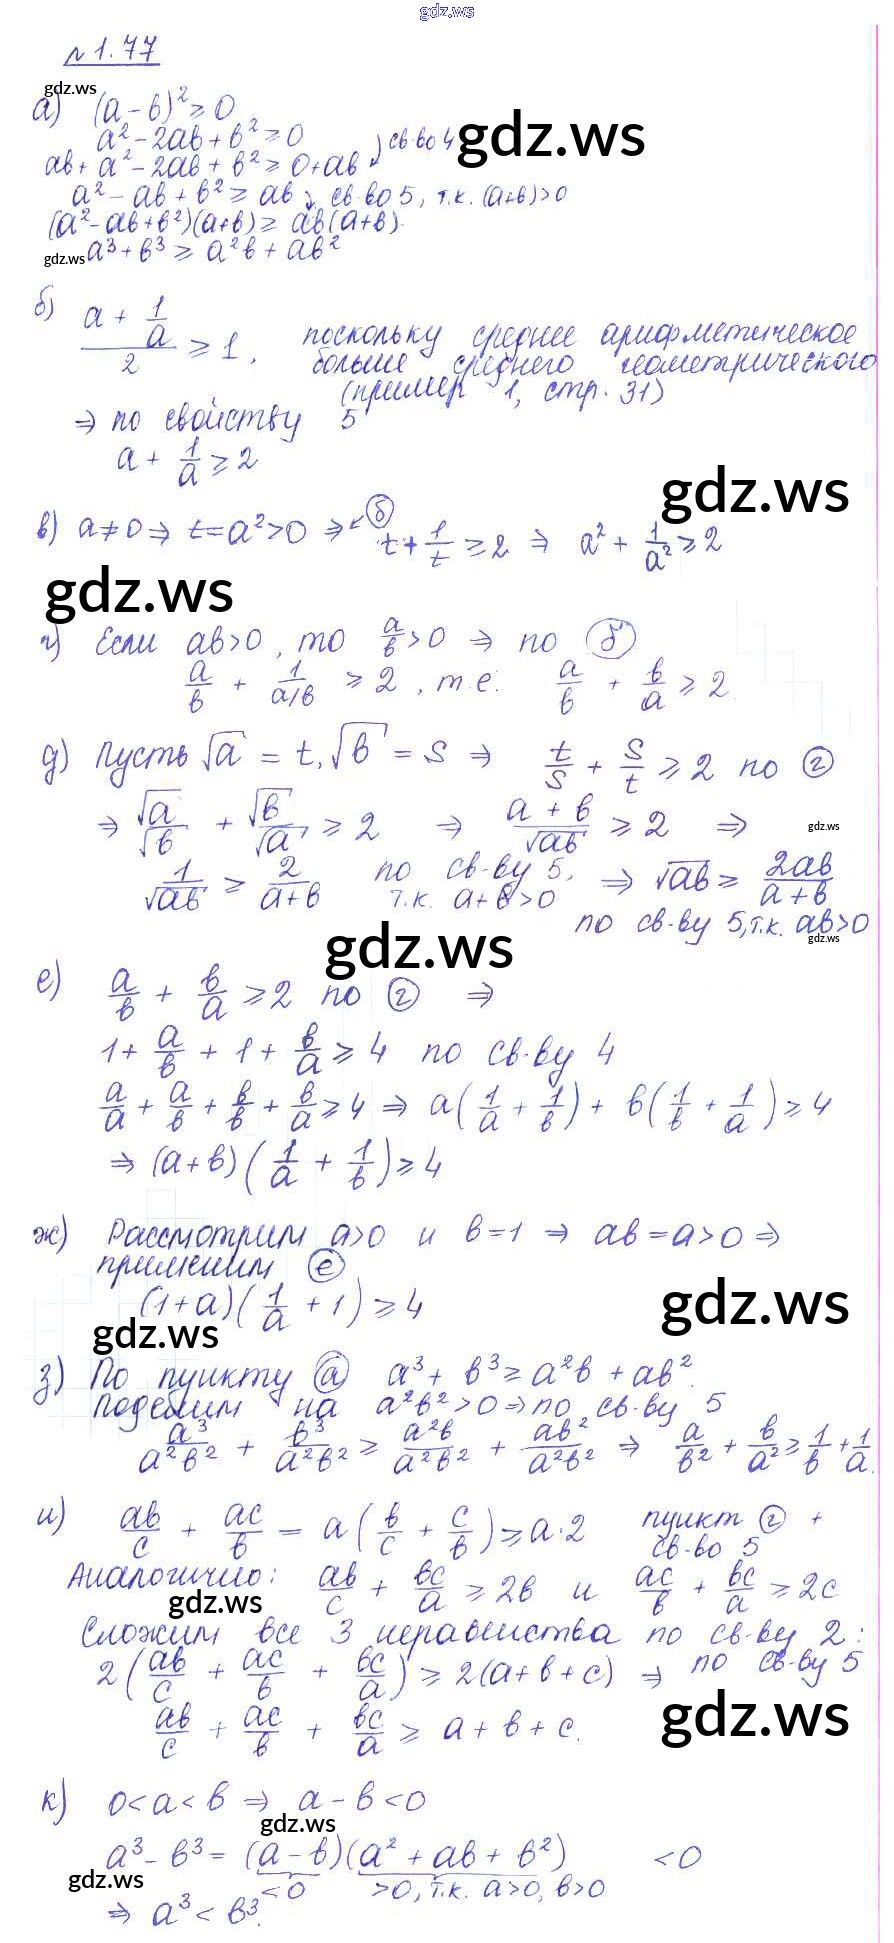 gdz.ws
№ 1.77
gdz.ws
а) (a-b)² ≥ 0
a² - 2ab + b² ≥ 0
св-во 4
gdz.ws
ab + a² - 2ab + b² ≥ 0 + ab
a² - ab + b² ≥ ab св-во 5, т.к. (a+b)>0
(a² - ab + b²)(a+b) ≥ ab(a+b)
gdz.ws
a³ + b³ ≥ a²b + ab²
б) (a + 1/a)/2 ≥ 1, поскольку среднее арифметическое
больше среднего геометрического
(пример 1, стр. 31)
⇒ по свойству 5
a + 1/a ≥ 2
gdz.ws
в) a ≠ 0 ⇒ t = a² > 0 ⇒ б t + 1/t ≥ 2 ⇒ a² + 1/a² ≥ 2
gdz.ws
г) Если ab > 0, то a/b > 0 ⇒ по б
a/b + 1/(a/b) ≥ 2, т.е. a/b + b/a ≥ 2.
д) Пусть √a = t, √b = s ⇒ t/s + s/t ≥ 2 по г
⇒ √a/√b + √b/√a ≥ 2 ⇒ (a + b)/√ab ≥ 2 ⇒
gdz.ws
1/√ab ≥ 2/(a+b) по св-ву 5, ⇒ √ab ≥ 2ab/(a+b)
т.к. a+b>0
по св-ву 5, т.к. ab>0
gdz.ws
gdz.ws
е) a/b + b/a ≥ 2 по г ⇒
1 + a/b + 1 + b/a ≥ 4 по св-ву 4
a/a + a/b + b/b + b/a ≥ 4 ⇒ a(1/a + 1/b) + b(1/b + 1/a) ≥ 4
⇒ (a+b)(1/a + 1/b) ≥ 4
ж) Рассмотрим a>0 и b=1 ⇒ ab = a > 0 ⇒
применим е
(1+a)(1/a + 1) ≥ 4
gdz.ws
gdz.ws
з) По пункту а a³ + b³ ≥ a²b + ab².
Поделим на a²b² > 0 ⇒ по св-ву 5
a³/a²b² + b³/a²b² ≥ a²b/a²b² + ab²/a²b² ⇒ a/b² + b/a² ≥ 1/b + 1/a.
и) ab/c + ac/b = a(b/c + c/b) ≥ a·2 пункт г +
св-во 5
Аналогично: ab/c + bc/a ≥ 2b и ac/b + bc/a ≥ 2c
gdz.ws
Сложим все 3 неравенства по св-ву 2:
2(ab/c + ac/b + bc/a) ≥ 2(a+b+c) ⇒ по св-ву 5
ab/c + ac/b + bc/a ≥ a + b + c.
gdz.ws
к) 0 < a < b ⇒ a - b < 0
gdz.ws
a³ - b³ = (a - b)(a² + ab + b²) < 0
gdz.ws
<0 >0, т.к. a>0, b>0
⇒ a³ < b³.